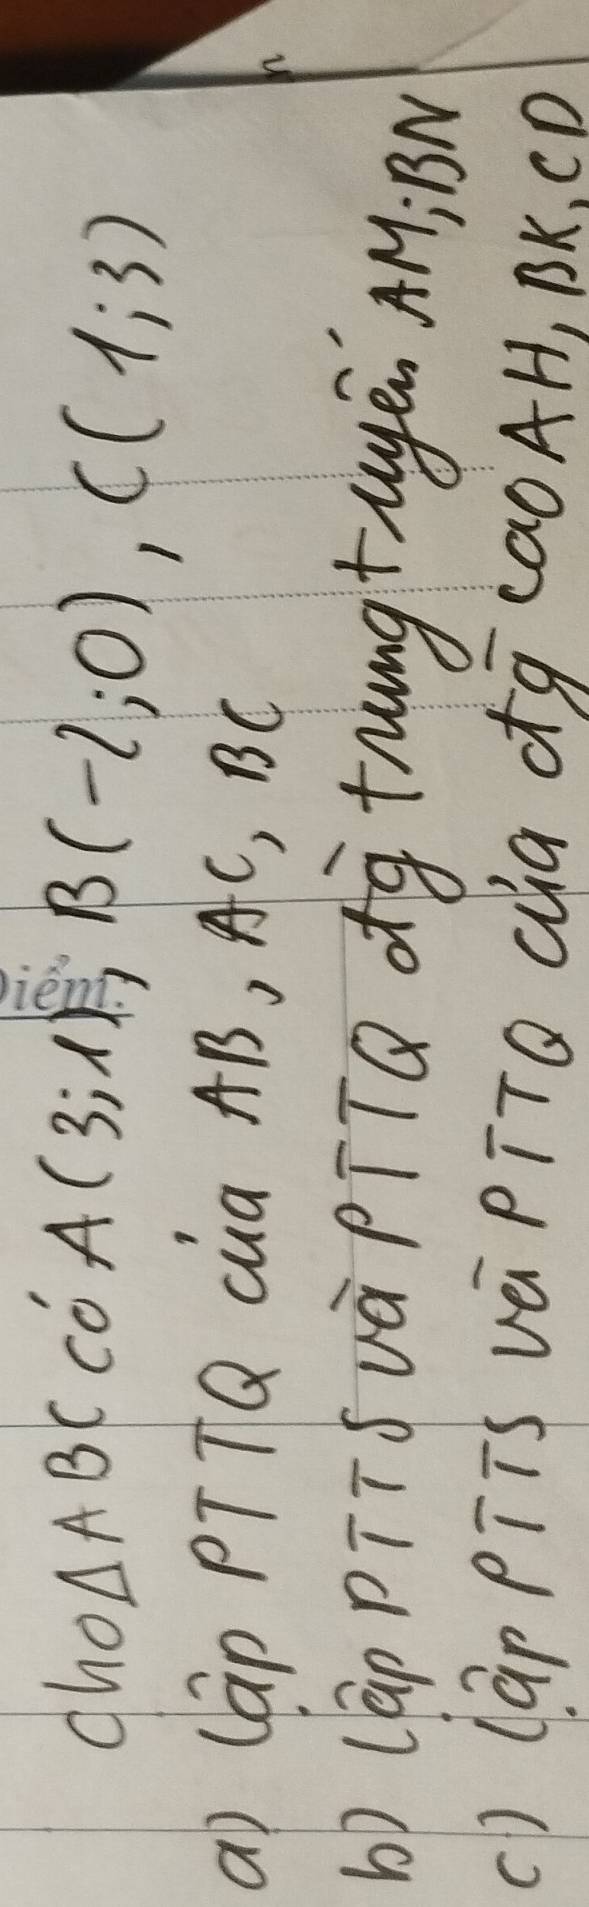 Điểm:
cho Δ ABC có A(3;1), B(-2;0), C(1;3)
a) Lập PTTQ của AB, AC, BC
b) Lập PTTS và PTTQ đg̀ trung tuyến AM; BN
c) Lập PTTS và PTTQ của đg̀ cao AH, BK, CD